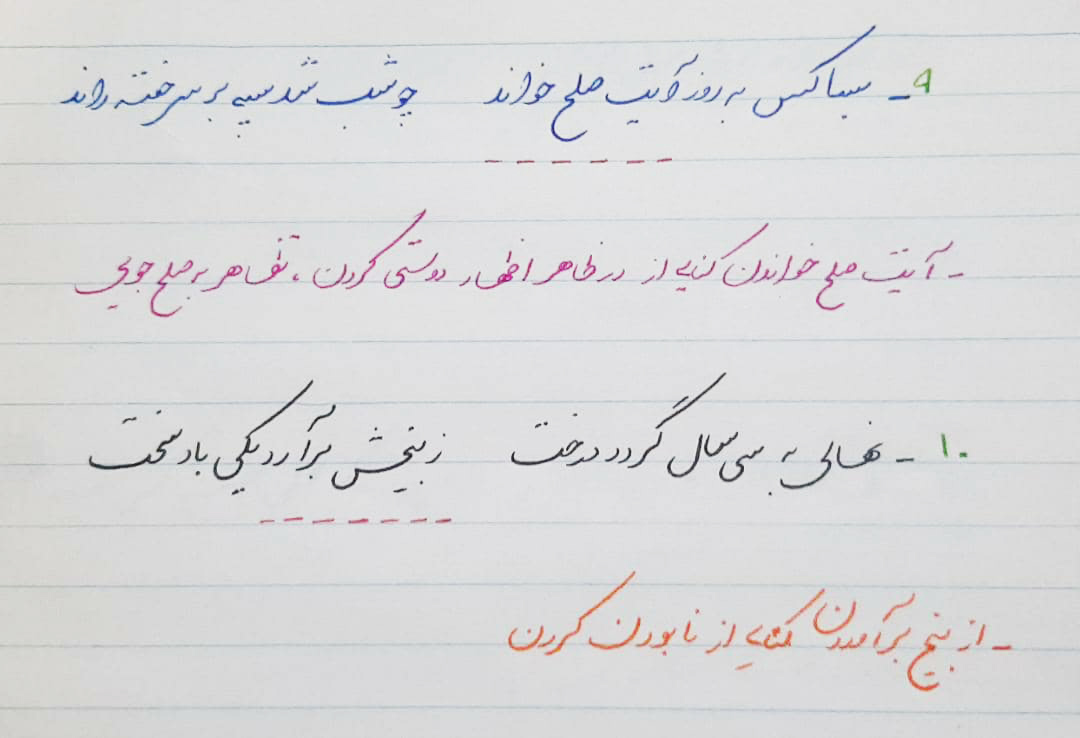 ۹- بسا کس به روز آیت صلح خواند    چو شب شد سپه بر سر خفته راند
- آیت صلح خواندن کنایه از در ظاهر اظهار دوستی کردن، تظاهر به صلح جویی
۱۰- نهالی به سی سال گردد درخت    ز بیخش برآرد یکی باد سخت
- از بیخ برآمدن کنایه از نابودن کردن